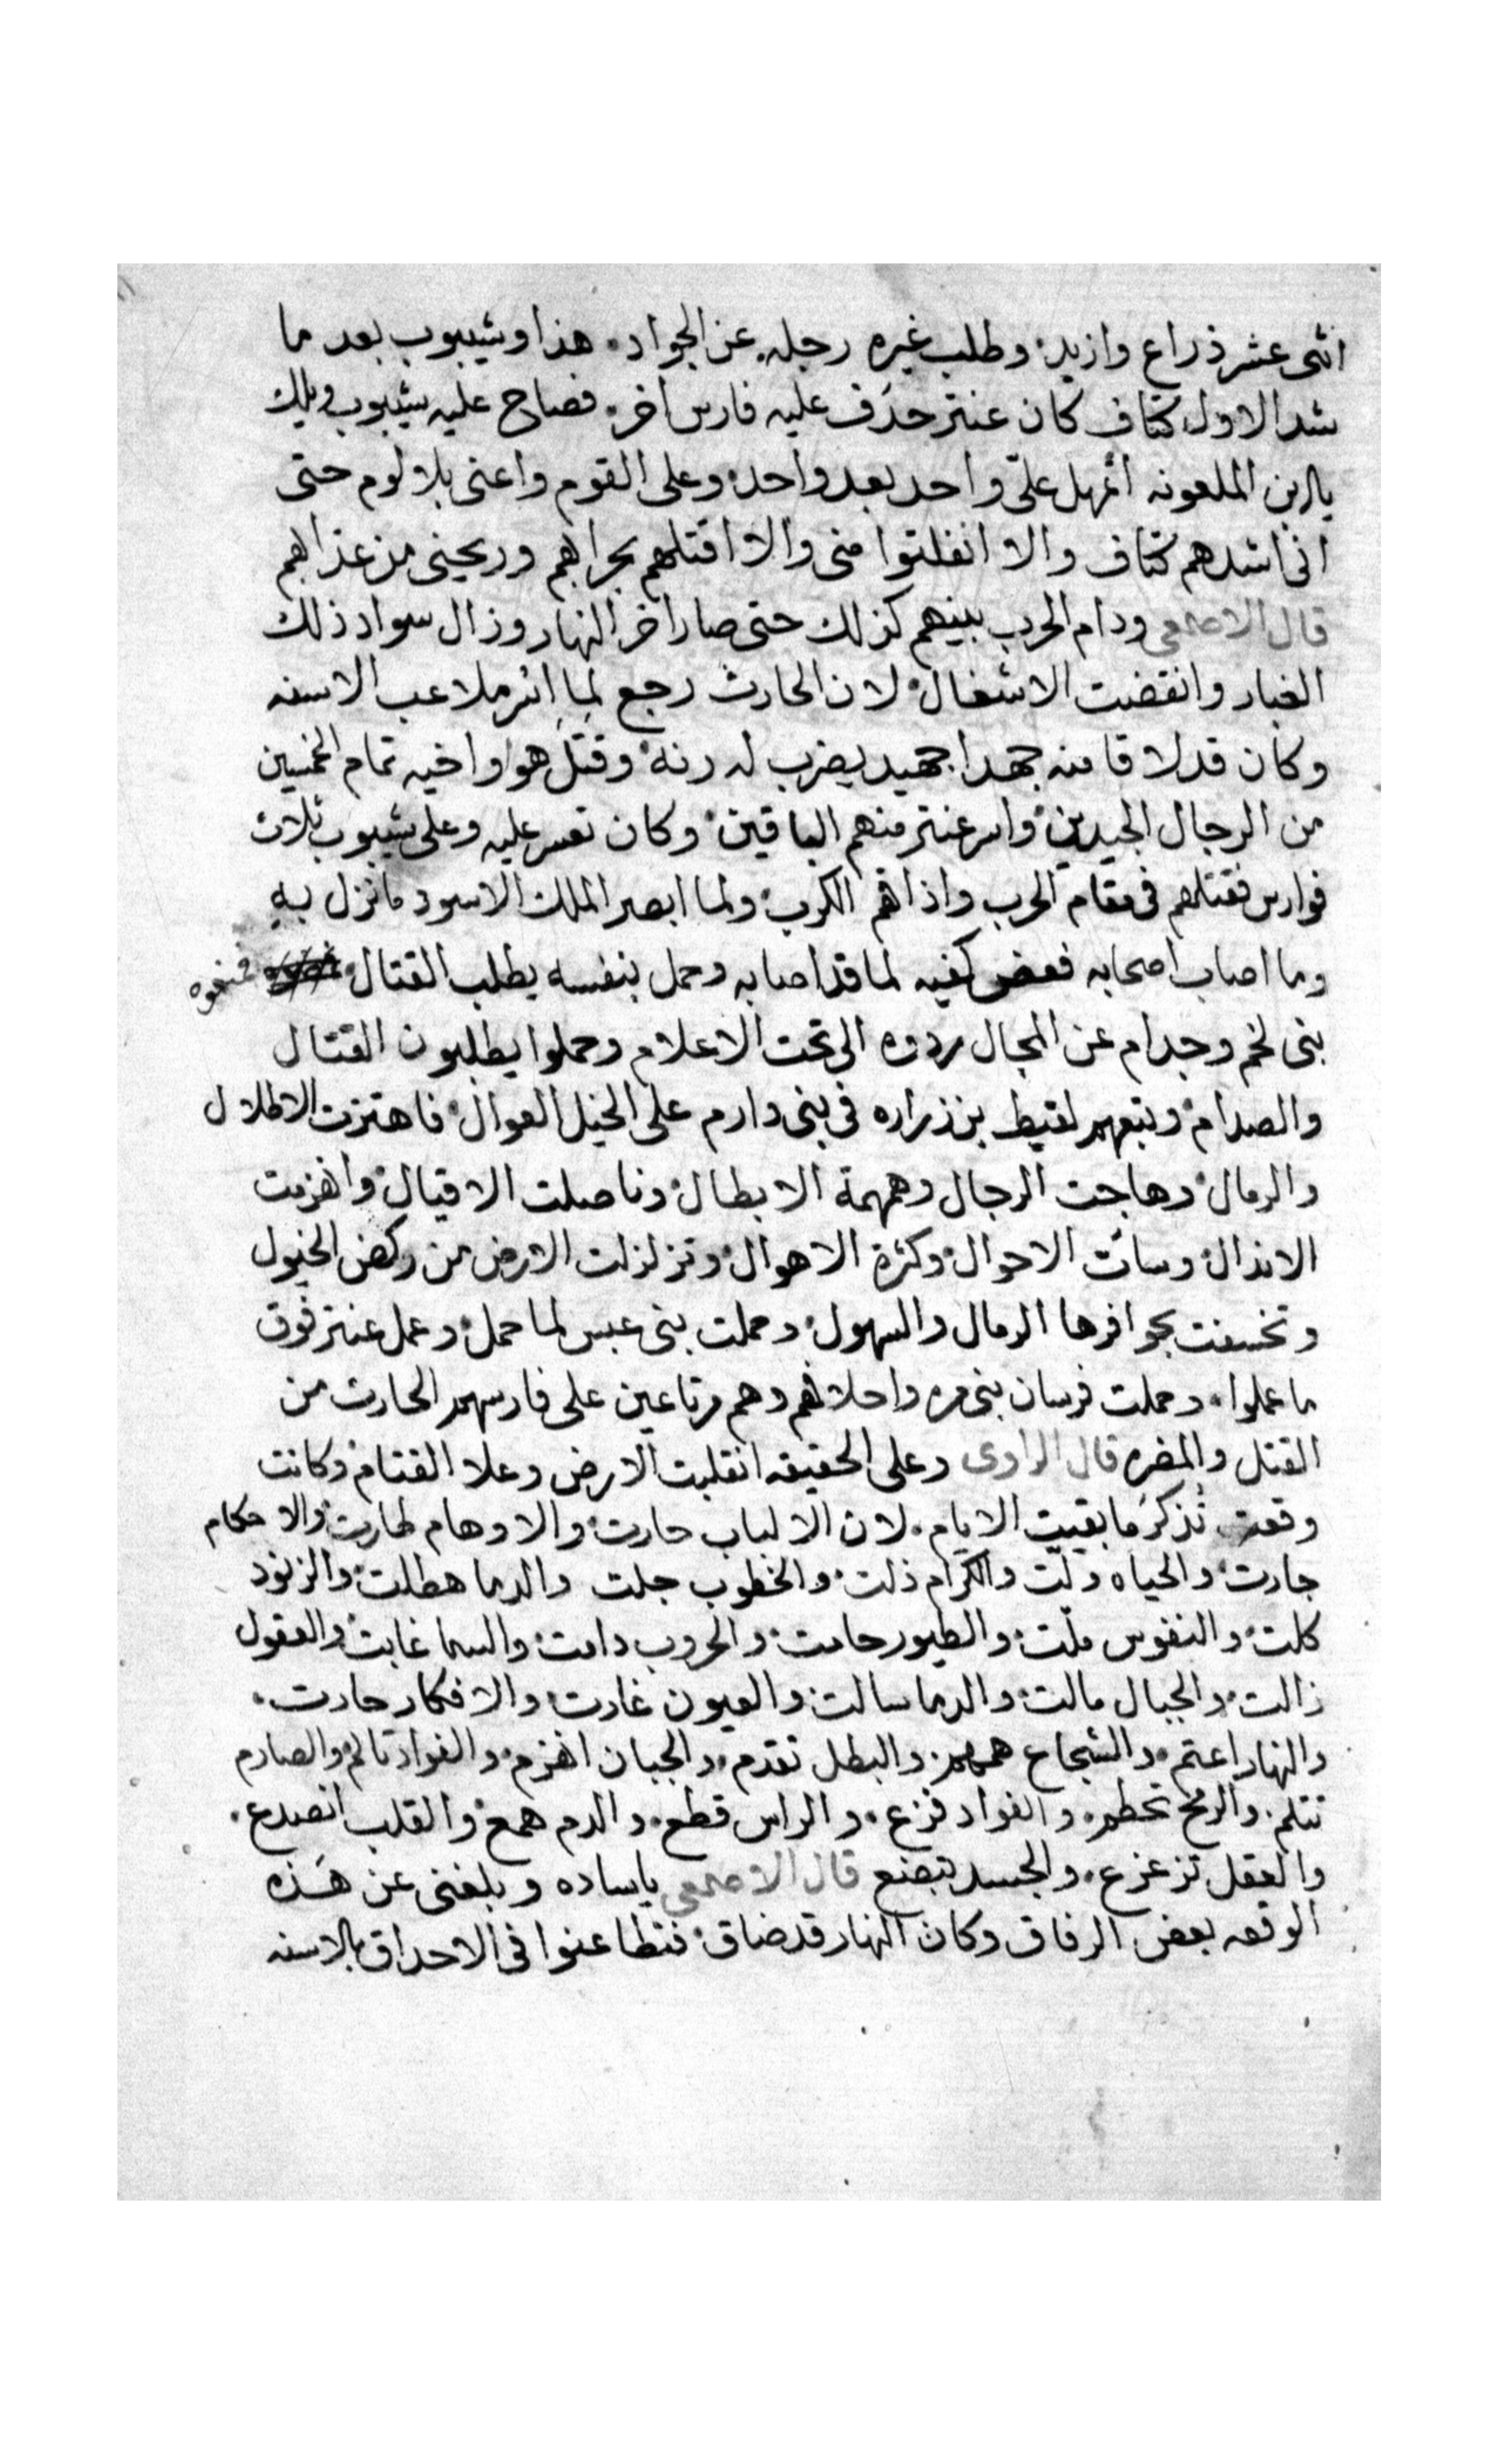 اثنى عشر ذراع وازيد وطلب غيره رجله عن الجواد هذا وشيبوب بعد ما
شد الاول كتاف كان عنتر حدف عليه فارس اخر فصاح عليه شيبوب ويلك
يابن الملعونه أتمهل علىّ واحد بعد واحد وعلى القوم واعنى بلا لوم حتى
انى اشدهم كتاف والا انفلتوا منى والا اقتلهم بحرابهم وريحينى من عذابهم
قال الاصمعى ودام الحرب بينهم كذلك حتى صار اخر النهار وزال سواد ذلك
الغبار وانقضت الاشغال لان الحارث رجع لما اسر ملاعب الاسنه
وكان قد لاقا منه جهدا جهيد يضرب له رنة وقتل هو واخيه تمام الخمسين
من الرجال الجيدين واسر عنتر منهم الباقين وكان تعسر عليه وعلى شيبوب ثلاث
فوارس فقتلهم فى مقام الحرب واذاقهم الكرب ولما ابصر الملك الاسود ما نزل به
وما اصاب اصحابه فعض كفيه لما قد اصابه وحمل بنفسه يطلب القتال فمنعوه
بنى لخم وجدام عن المجال ردوه الى تحت الاعلام وحملوا يطلبون القتال
والصدام وتبعهم لقيط بن زراره فى بنى دارم على الخيل العوال فاهتزت الاطلال
والرمال وهاجت الرجال وهمهمة الابطال وناصلت الاقيال وانهزمت
الاندال وسأت الاحوال وكثرة الاهوال وتزلزلت الارض من ركض الخيول
وتخسفت بحوافرها الرمال والسهول وحملت بنى عبس لما حمل وعمل عنتر فوق
ما عملوا وحملت فرسان بنى مره واحلافهم وهم مرتاعين على فارسهم الحارث من
القتل والمضره قال الراوى وعلى الحقيقه انقلبت الارض وعلا القتام وكانت
وقعت تُذكرَ ما بقيت الايام لان الالباب حارت والاوهام طارت والاحكام
جارت والحياه ولّت والكرام ذلت والخطوب جلت والدما هطلت والزنود
كلت والنفوس ملّت والطيور حامت والحروب دامت والسما غابت والعقول
زالت والجبال مالت والدما سالت والعيون غارت والافكار حارت
والنهار اعتم والشجاع همهم والبطل تقدم والجبان انهزم والفواد تالم والصارم
تتلم والرمح تحطم والفواد فزع والراس قطع والدم همع والقلب انصدع
والعقل تزعزع والجسد تبضع قال الاصمعى ياساده وبلغنى عن هَذه
الوقعه بعض الرفاق وكان النهار قد ضاق فتطاعنوا فى الاحداق بالاسنه